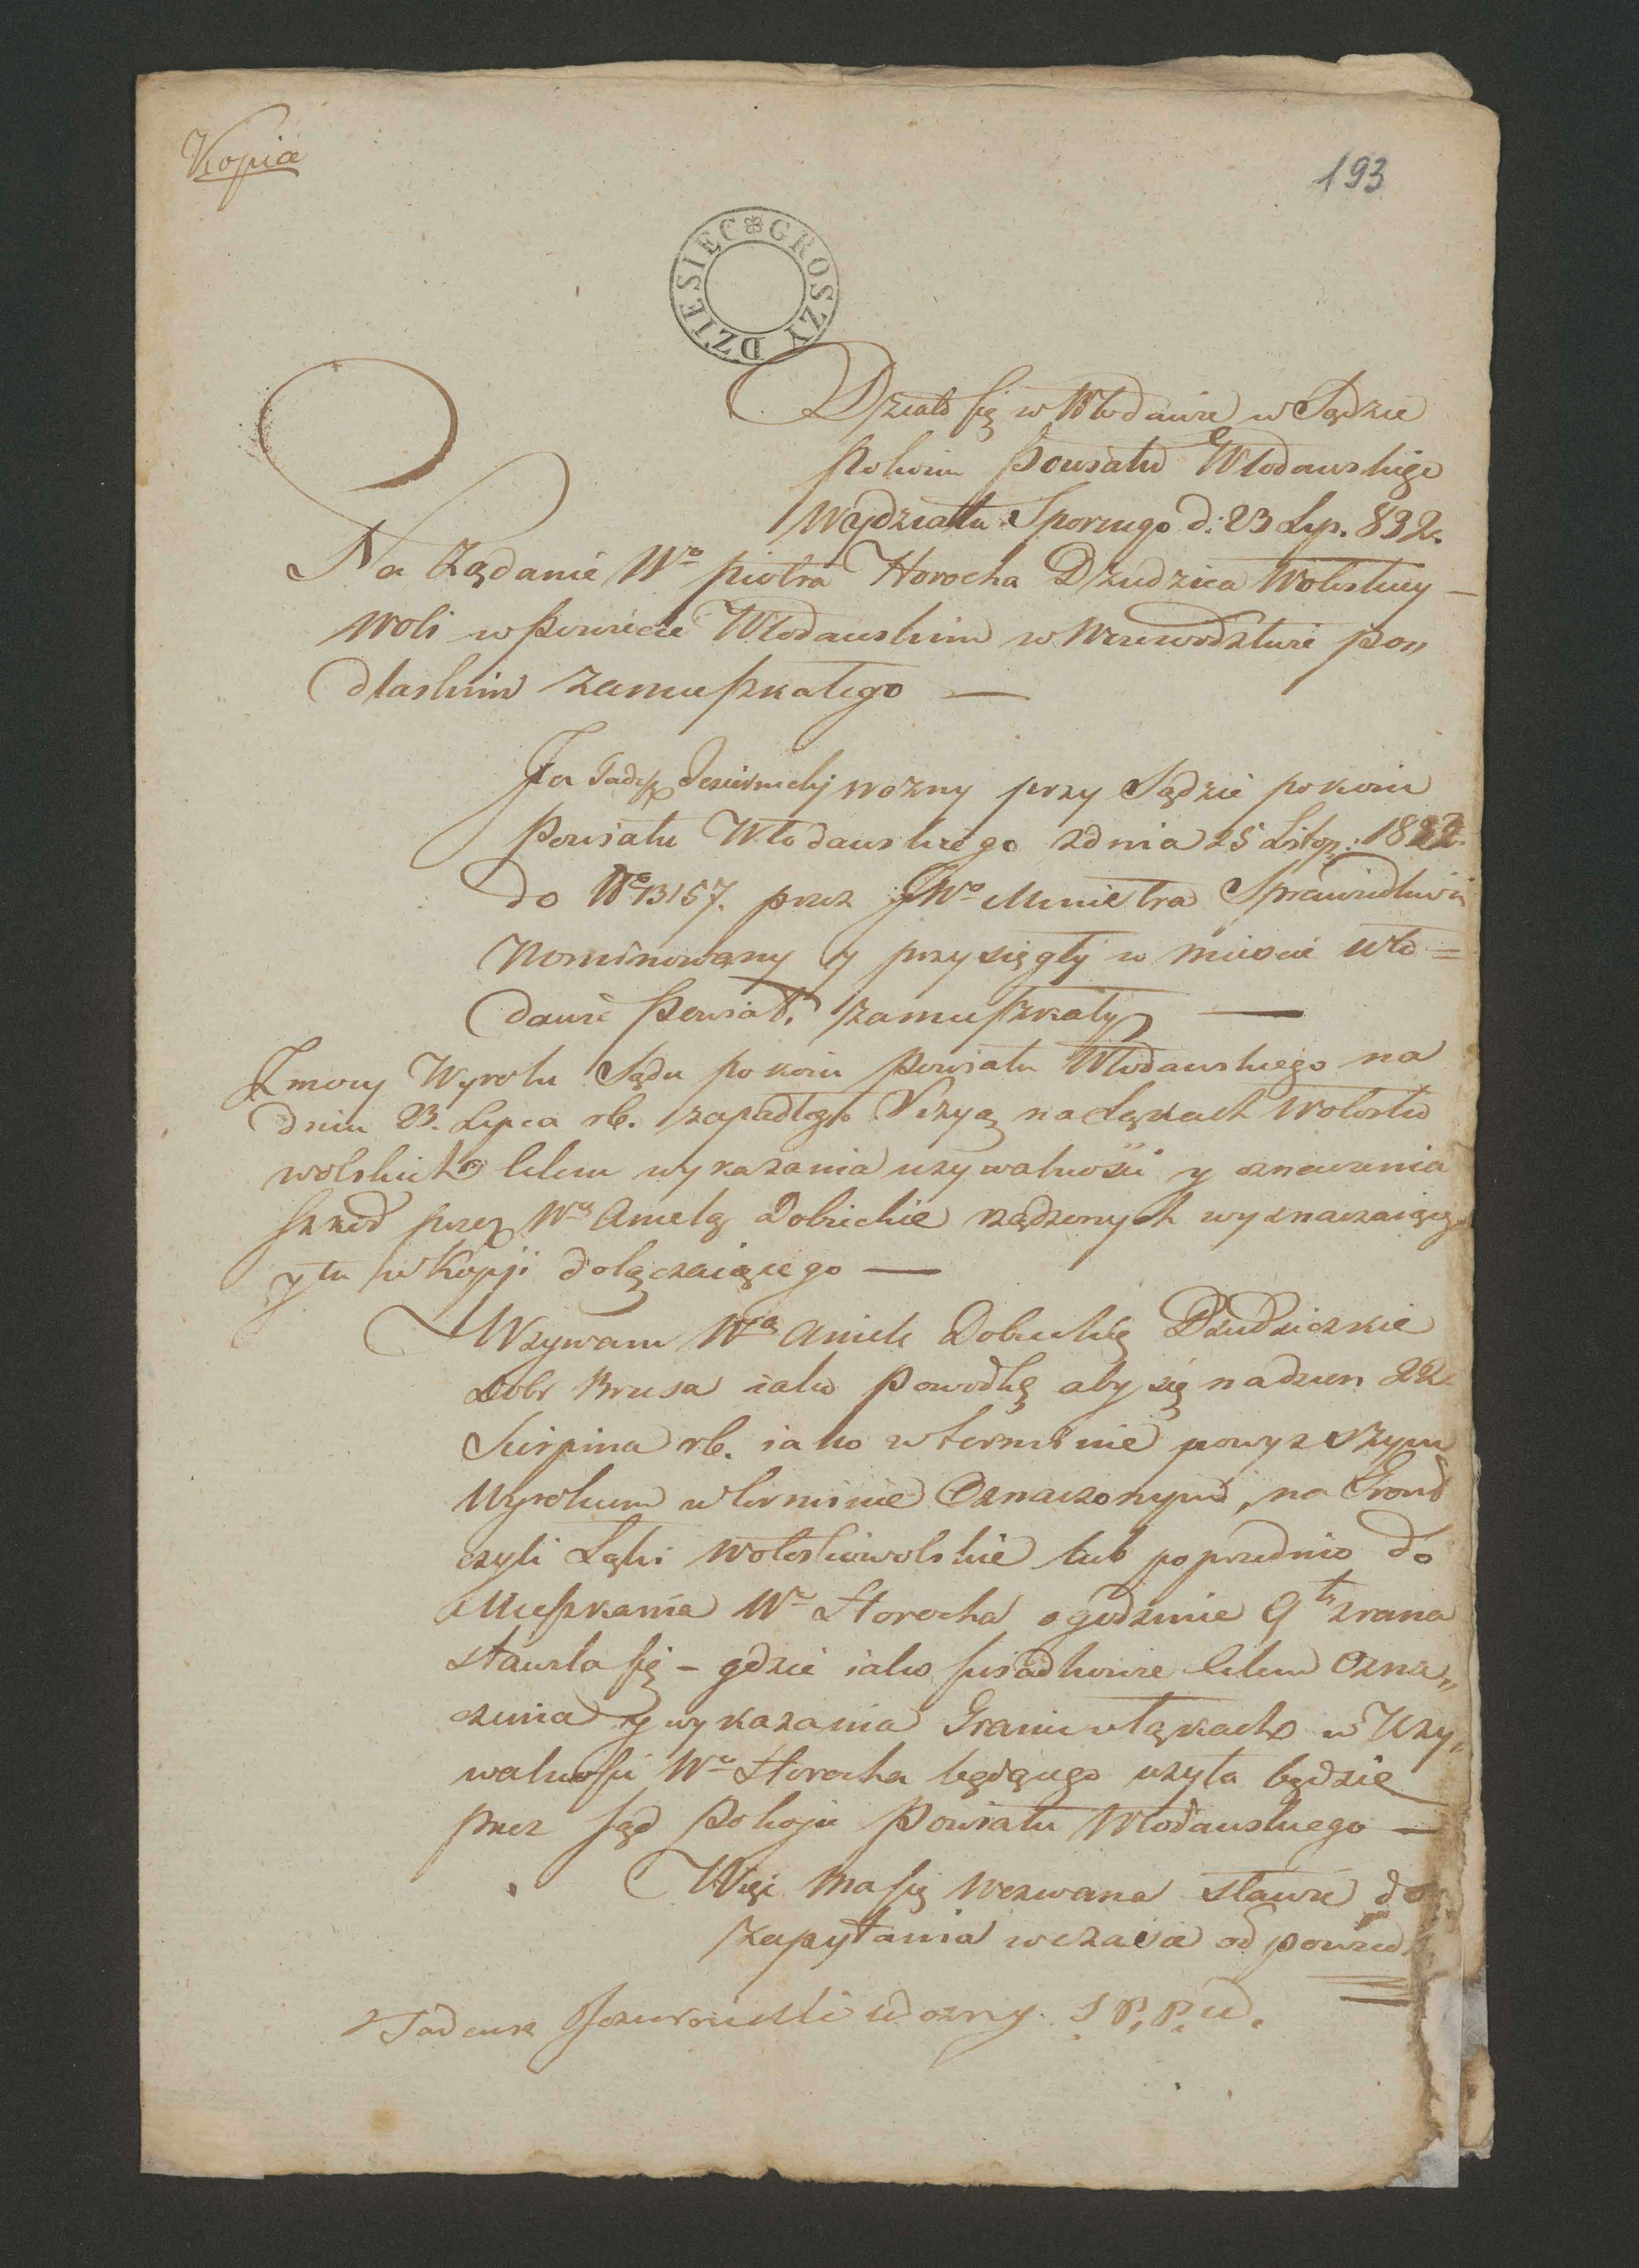 Kopia
193
GROSZY DZIESIEC
Działo się w Włodawie w Sądzie
Pokoiu Powiatu Włodawskiego
Wydziału Spornego d: 23 Lip. 832.
Na Ządanie Wo Piotra Horocha Dziedzica Wołoskiey
Woli w Powiecie Włodawskim w Woiewodztwie Po„
dlaskim zamieszkałego —
Ja Tadeusz wozny przy Sądzie pokoiu
Powiatu Włodawskiego z dnia 25 Listop:
do No 13157. przez JWo Ministra Sprawiedliwości
Nominowany y przysięgły w mieście Wło=
dawie Powiat. zamieszkały —
Z mocy Wyroku Sądu pokoiu Powiatu Włodawskiego na
dniu 23. Lipca rb. zapadłego Wizyą na Łąkach Wołosko
wolskich celem wykazania uzywalności y oznaczenia
szkod przez Wą Anielę Dobiecką rządzonych wyznaczaiącego
y tu w Kopji dołączaiącego —
Wzywam Wą Anielę Dobiecką Dziedziczkie
Dobr Brusa iako Powodkę aby się na dzien 22
Sierpnia rb. iako w terminie powyzszym
Wyrokiem w terminie Oznaczonym, na Grunt
czyli Łąki Wołoskowolskie lub poprzednio do
Mieszkania Wo Horocha o godzinie 9tey zrana
stawiła się – gdzie iako celem Ozna„
czenia y wykazania Granic w Łąkach w Uzy„
walności Wo Horocha będącego uzyta będzie
przez Sąd Pokoju Powiatu Włodawskiego —
Więc ma się wezwana stawić do
zapytania w czasie odpowied
Tadeusz wozny. S P. P. W.